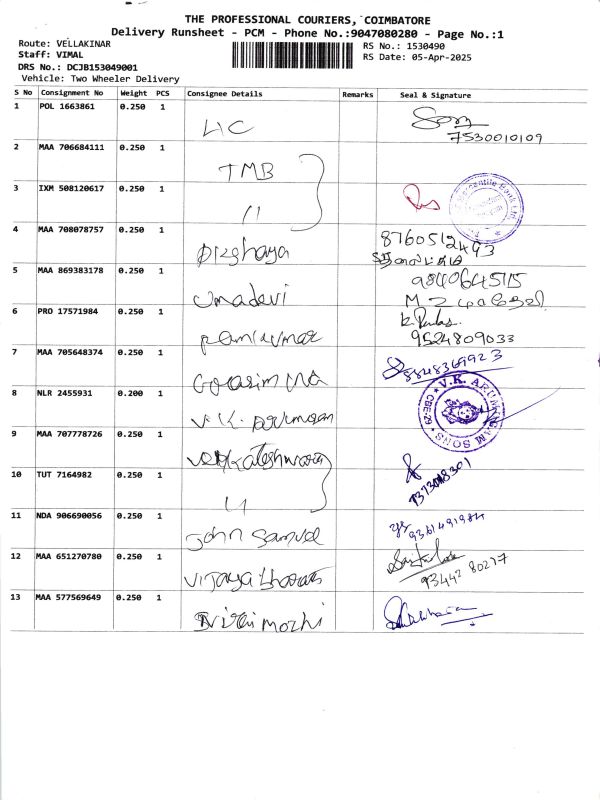 THE PROFESSIONAL COURIERS, COIMBATORE
Delivery Runsheet - PCM - Phone No.:9047080280 - Page No.:1
Route: VELLAKINAR
RS No.: 1530490
Staff: VIMAL
RS Date: 05-Apr-2025
DRS No.: DCJB153049001
Vehicle: Two Wheeler Delivery
S No Consignment No Weight PCS Consignee Details Remarks Seal & Signature
1 POL 1663861 0.250 1 LIC
7530010109
2 MAA 706684111 0.250 1 TMB
3 IXM 508120617 0.250 1 11
4 MAA 708078757 0.250 1
8760512493
5 MAA 869383178 0.250 1 Umadevi
9840645115
6 PRO 17571984 0.250 1 Ramkumar
9524809033
7 MAA 705648374 0.250 1
8848369923
8 NLR 2455931 0.200 1 V.K. Arumugam
V.K. ARUMUGAM SONS CBE-29
9 MAA 707778726 0.250 1 Venkateshwara
10 TUT 7164982 0.250 1 11
7373048301
11 NDA 906690056 0.250 1 John Samuel
9361491984
12 MAA 651270780 0.250 1 Vijaya bharath
93442 80277
13 MAA 577569649 0.250 1